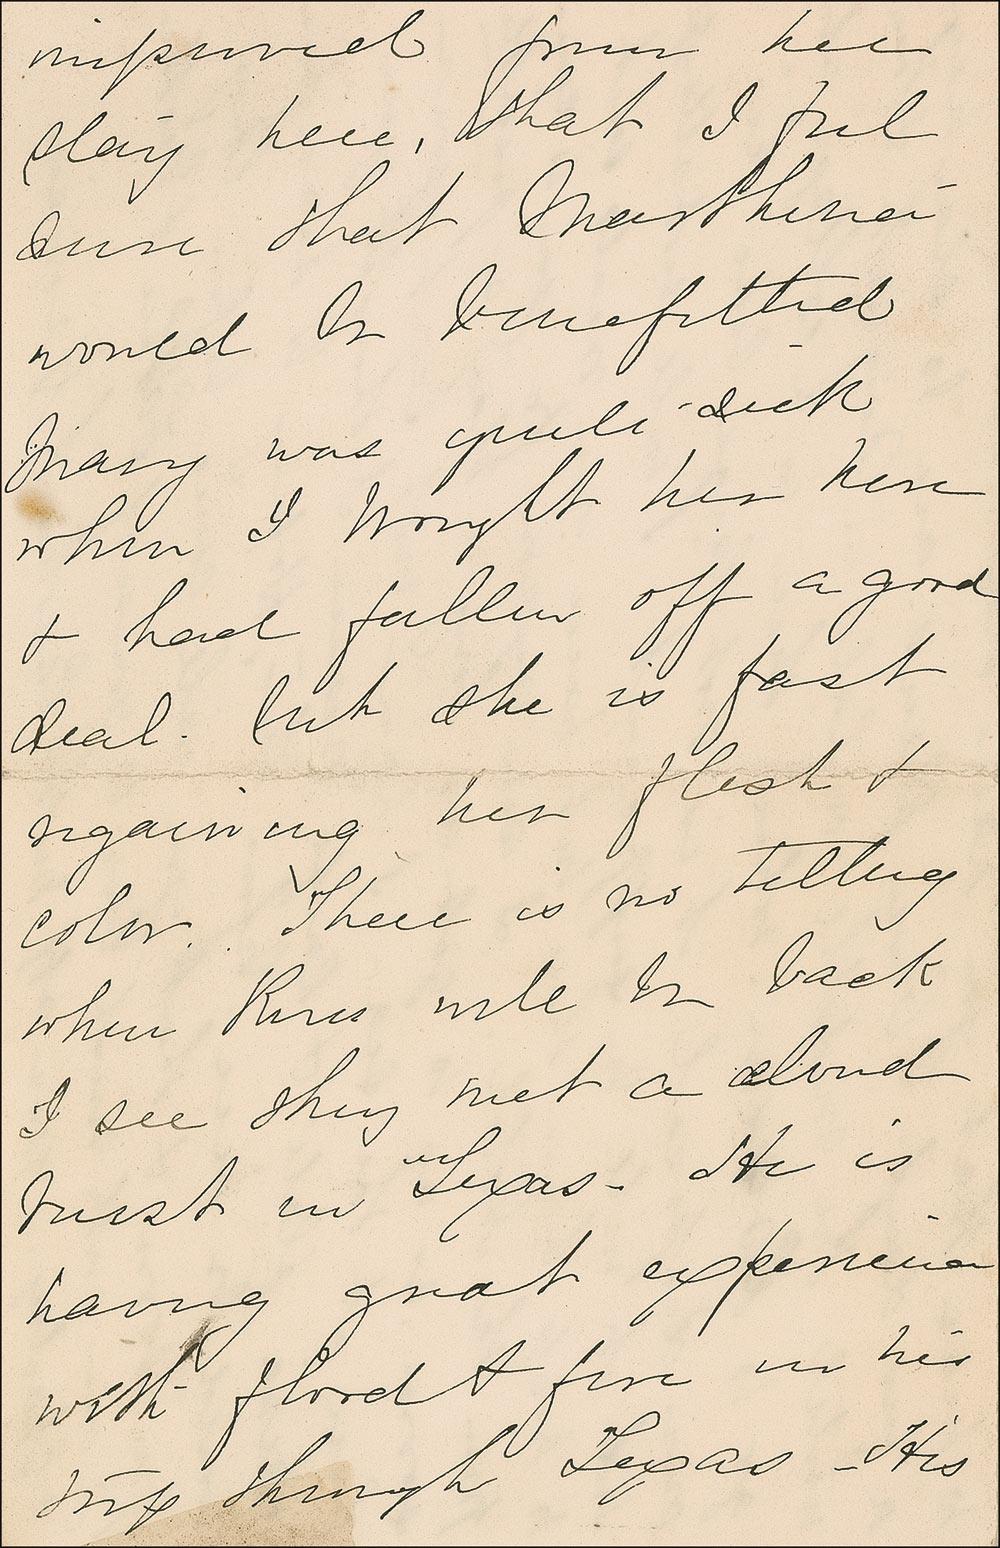 improved from her
stay here, that I feel
sure that Marthena
would be benefitted
Mary was quite sick
when I brought her here
& had fallen off a good
deal. but she is fast
regaining her flesh &
color. There is no telling
when Russ will be back
I see they met a cloud
burst in Texas - He is
having great experience
with flood & fire in his
trip through Texas - His